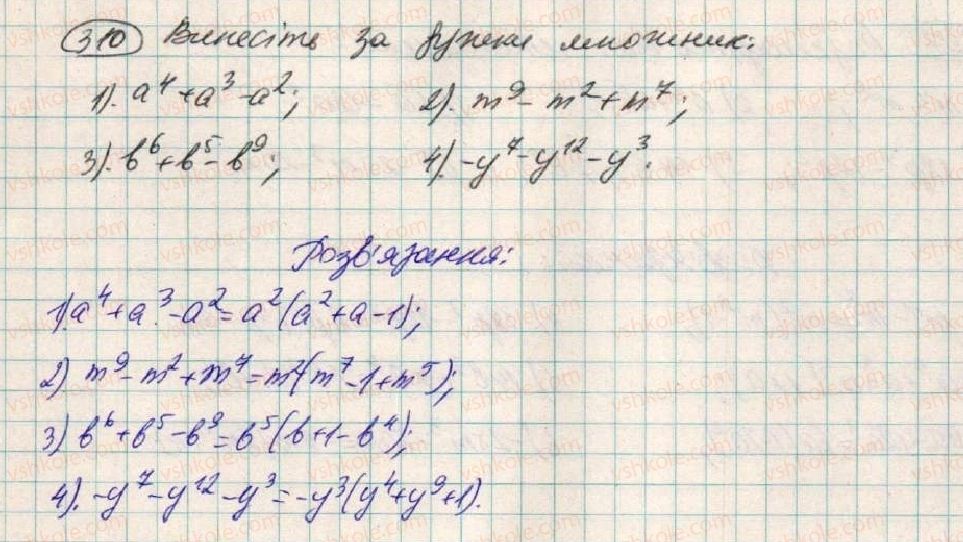 310 Винесіть за дужки множник:
1). a⁴+a³-a²; 2). m⁹-m²+m⁷;
3). b⁶+b⁵-b⁹; 4). -y⁷-y¹²-y³.
Розв'язання:
1). a⁴+a³-a²=a²(a²+a-1);
2) m⁹-m²+m⁷=m²(m⁷-1+m⁵);
3) b⁶+b⁵-b⁹=b⁵(b+1-b⁴);
4). -y⁷-y¹²-y³=-y³(y⁴+y⁹+1).
vshkole.com